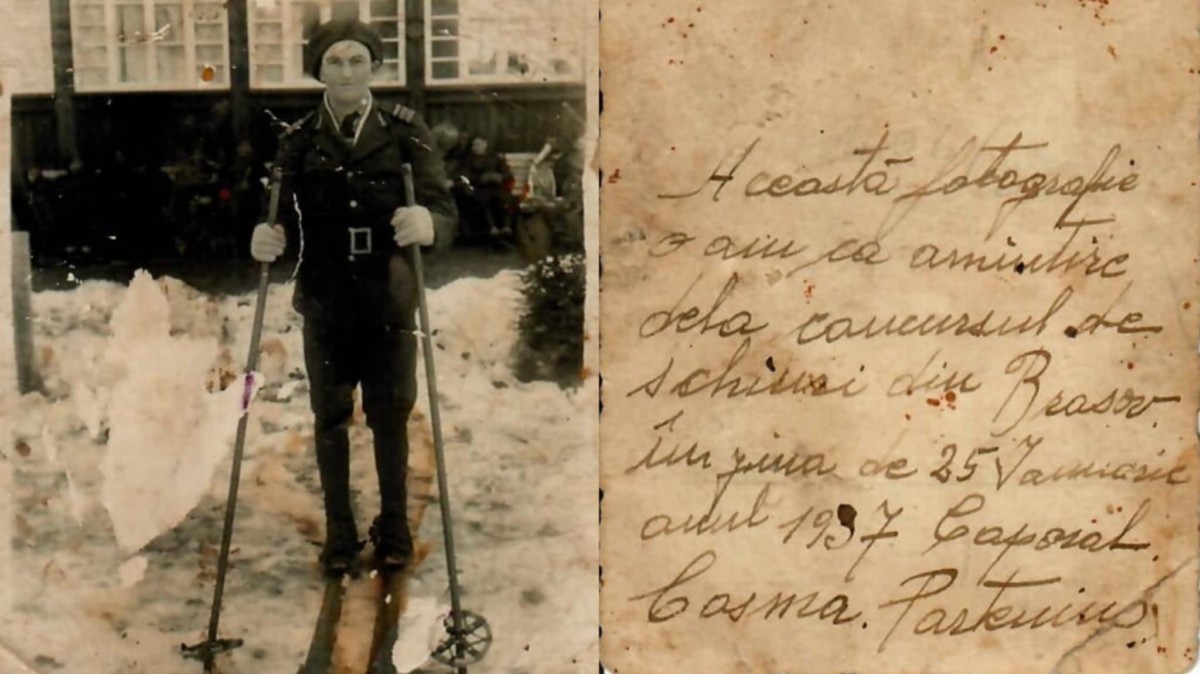 Această fotografie
o am ca amintire
dela concursul de
schiuri din Brasov.
în ziua de 25 Ianuarie
anul 1937 Caporal.
Cosma. Partenius